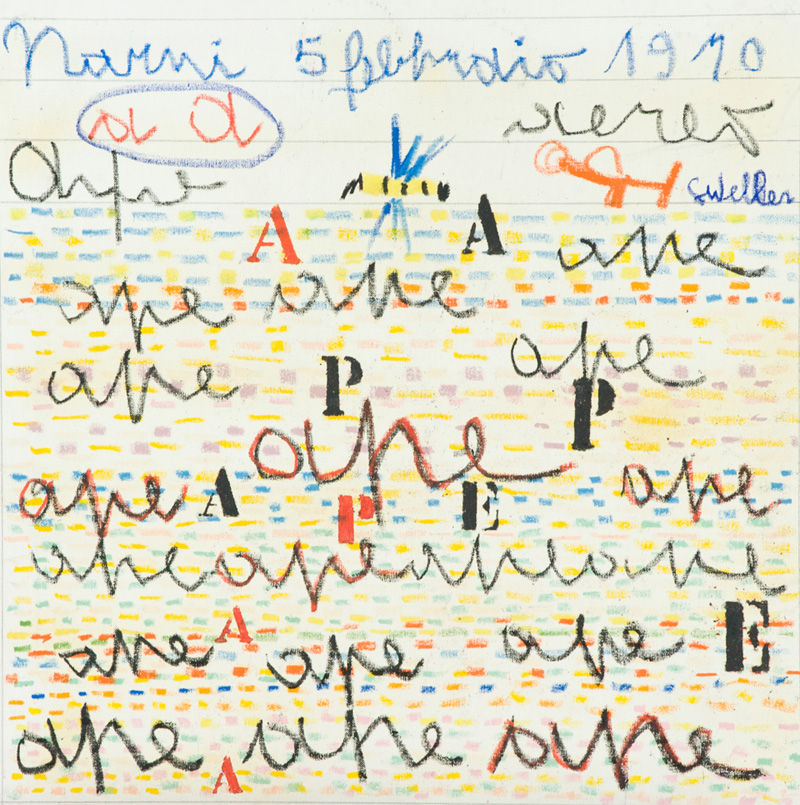 Narni 5 febbraio 1910
a a aereo
ape
A A ape
ape ape
ape P ape P
ape
ape A P E ape
apeapeapeape
A
ape ape ape E
ape ape ape
A